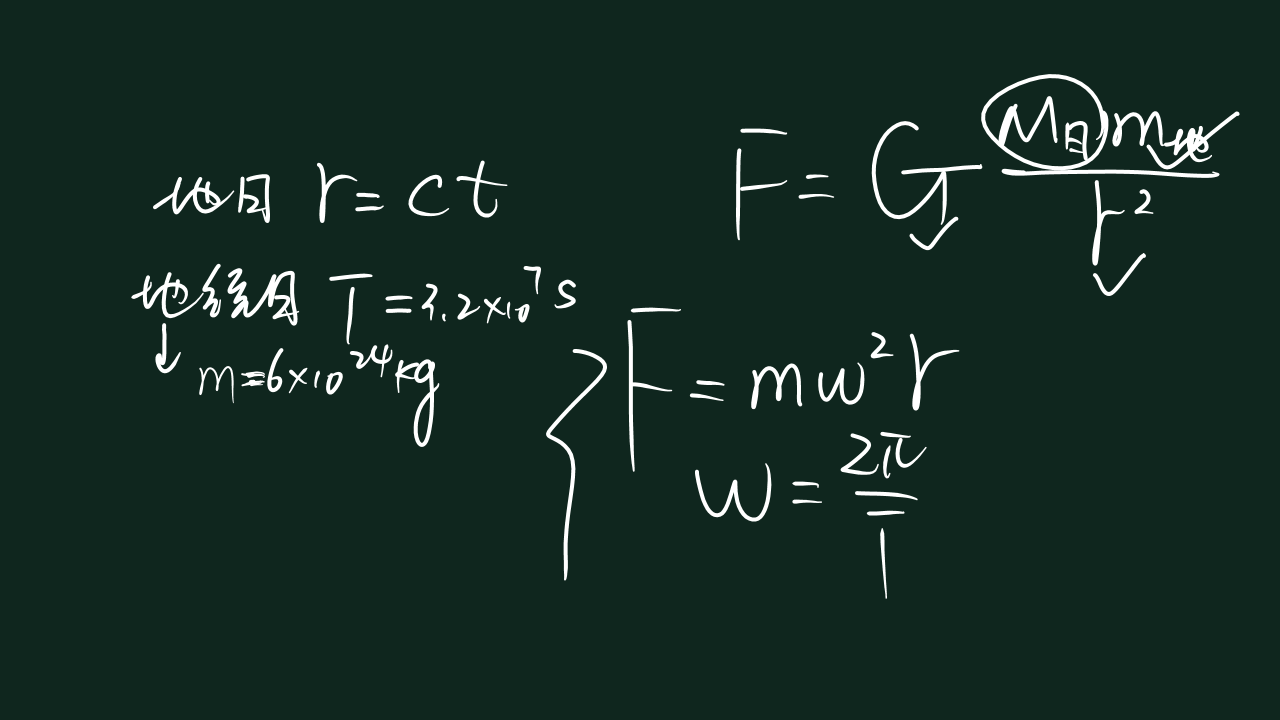 地日 r = ct
地绕日 T = 3.2×10⁷ s
↓ m = 6×10²⁴ kg
F = G M日 m地 / r²
F = mω²r
ω = 2π / T